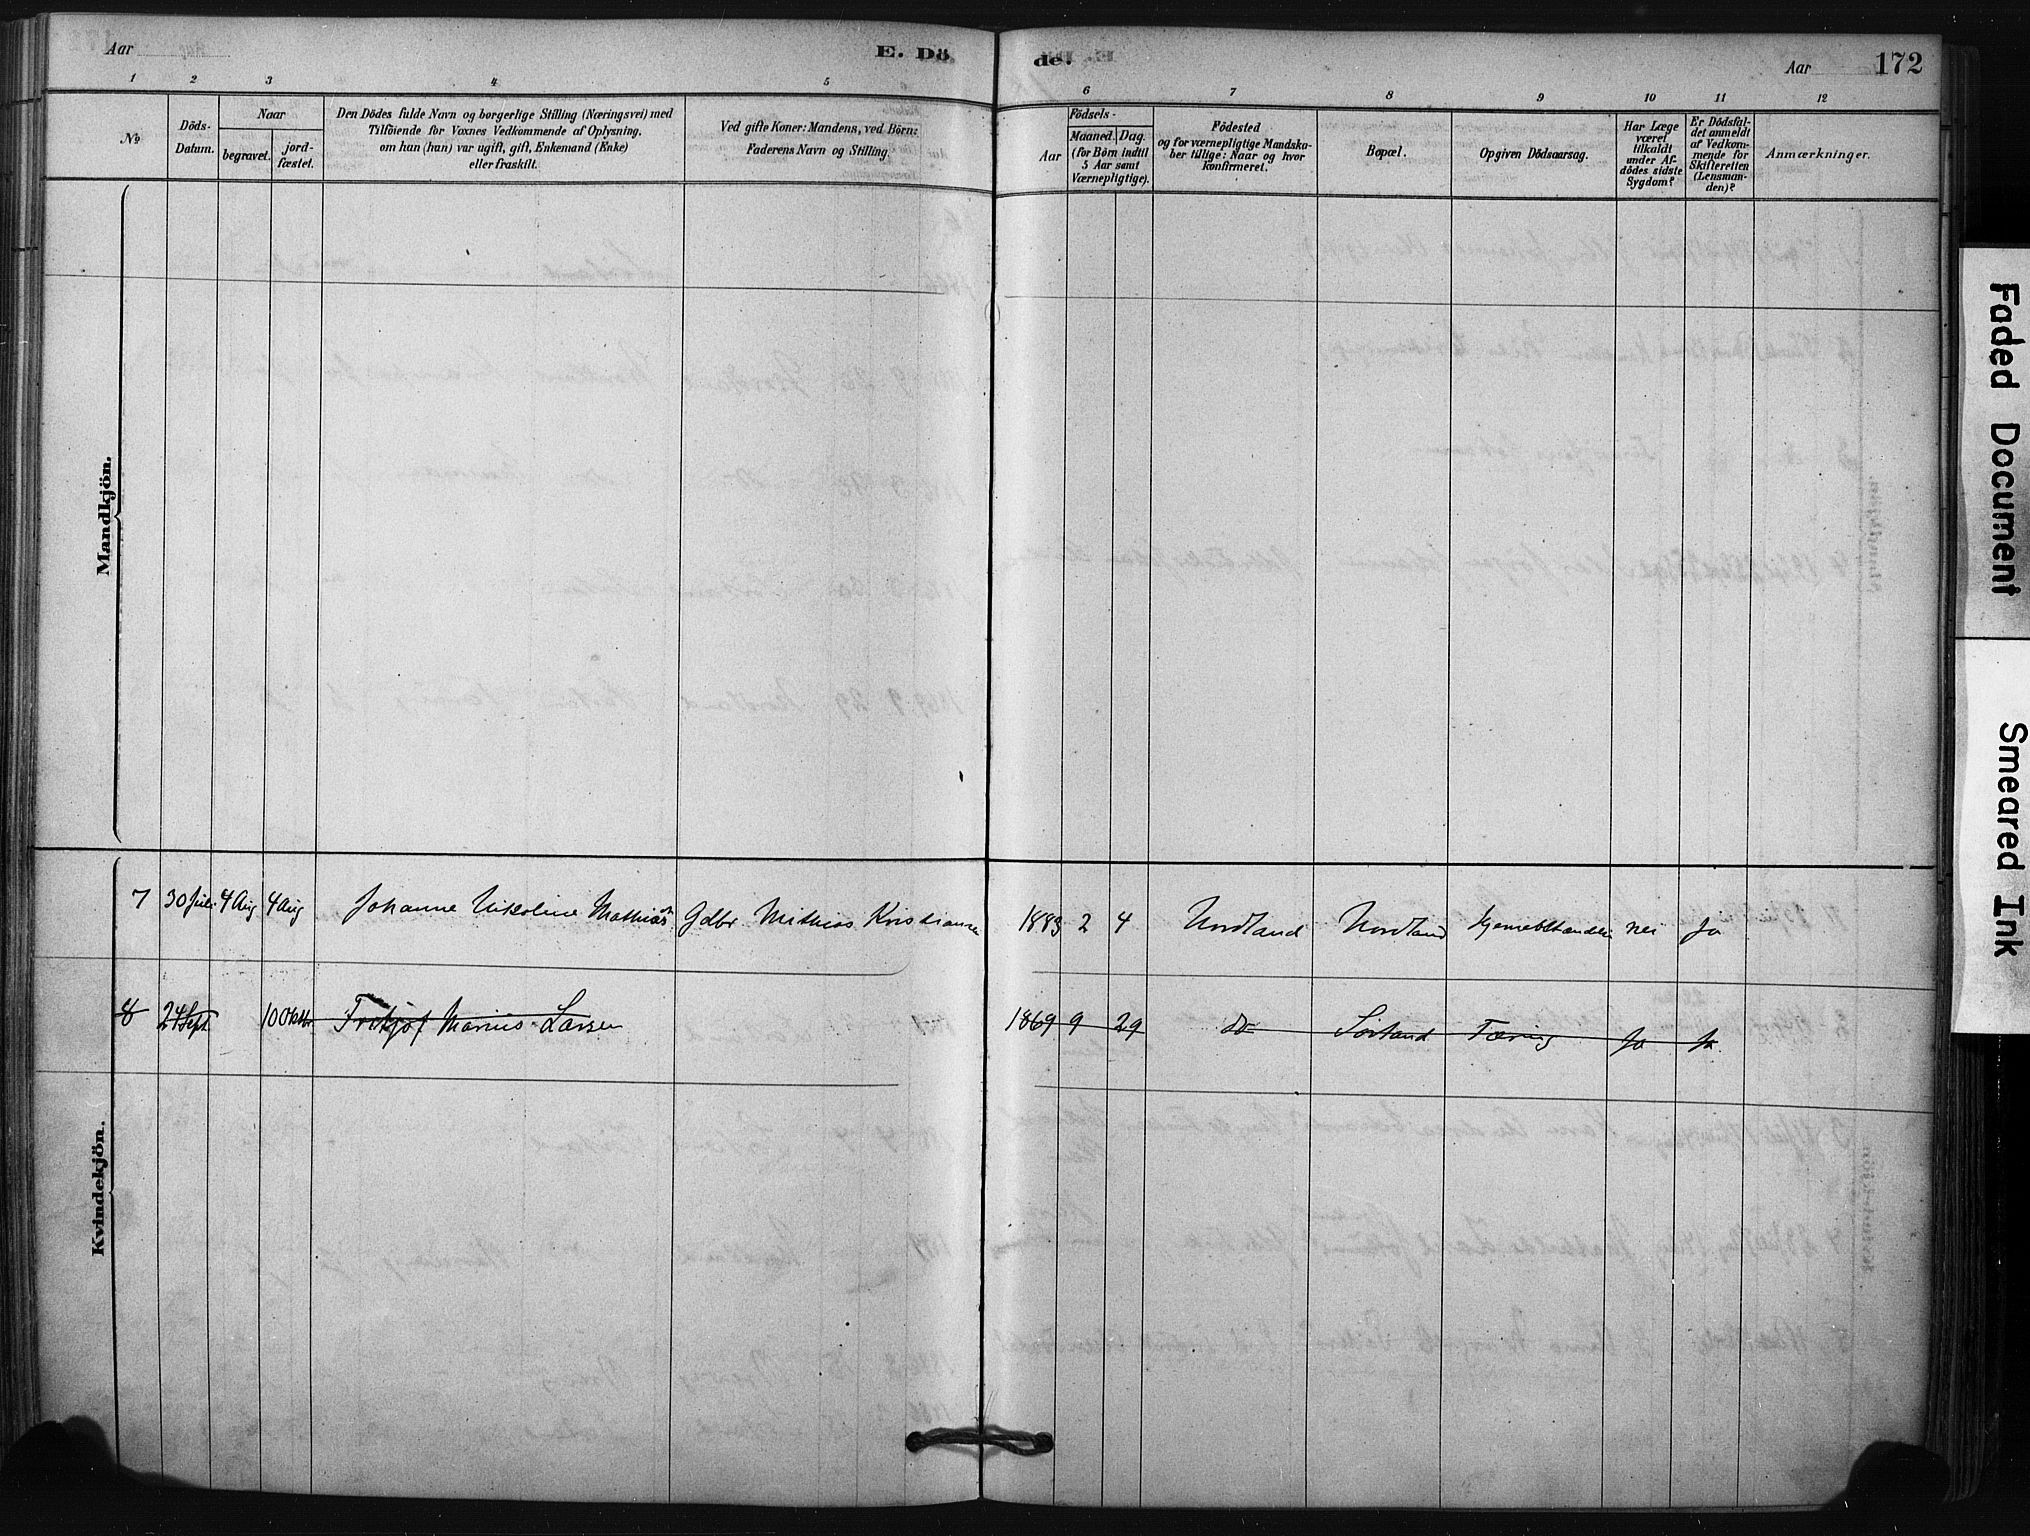 Aar
E. Dö
de.
Aar
172
1 2 3 4 5 6 7 8 9 10 11 12
№
Döds-
Datum.
Naar
begravet.
jord-
fæstet.
Den Dödes fulde Navn og borgerlige Stilling (Næringsvei) med
Tilföiende for Voxnes Vedkommende af Oplysning.
om han (hun) var ugift, gift, Enkemand (Enke)
eller fraskilt.
Ved gifte Koner: Mandens, ved Börn:
Faderens Navn og Stilling.
Födsels-
Aar
Maaned. Dag.
(for Börn indtil
5 Aar samt
Værnepligtige).
Födested
og for værnepligtige Mandska-
ber tillige: Naar og hvor
konfirmeret.
Bopæl.
Opgiven Dödsaarsag.
Har Læge
været
tilkaldt
under Af-
dödes sidste
Sygdom?
Er Dödsfal-
det anmeldt
af Vedkom-
mende for
Skifteretten
(Lensman-
den)?
Anmærkninger.
Mandkjön.
7 30 Juli 4 Aug 4 Aug Johanne Nikoline Mathias Gdbr Mathias Kristiansen 1883 2 4 Nordland Nordland nei ja
8 24 Sept 10 Oktbr Fritjof Marius Larsen 1869 9 29 do Sorland Tæring ja ja
Kvindekjön.
Faded Document
Smeared Ink